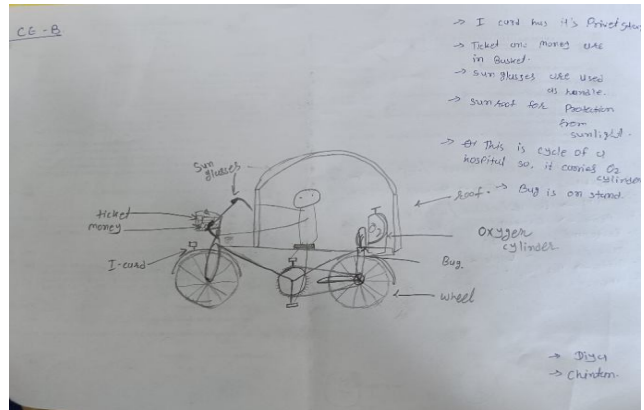 CE-B
→ I card has it's Privet
→ Ticket and money are
in Busket.
→ sunglasses are used
as handle.
→ sunroof for protection
from
sunlight.
→ This is cycle of a
hospital so, it carries O2
cylinder
→ Bug is on stand.
roof.
Sun
glasses
ticket
money
I-card
O2
Oxygen
cylinder
Bug
wheel
→ Diya
→ Chintan.